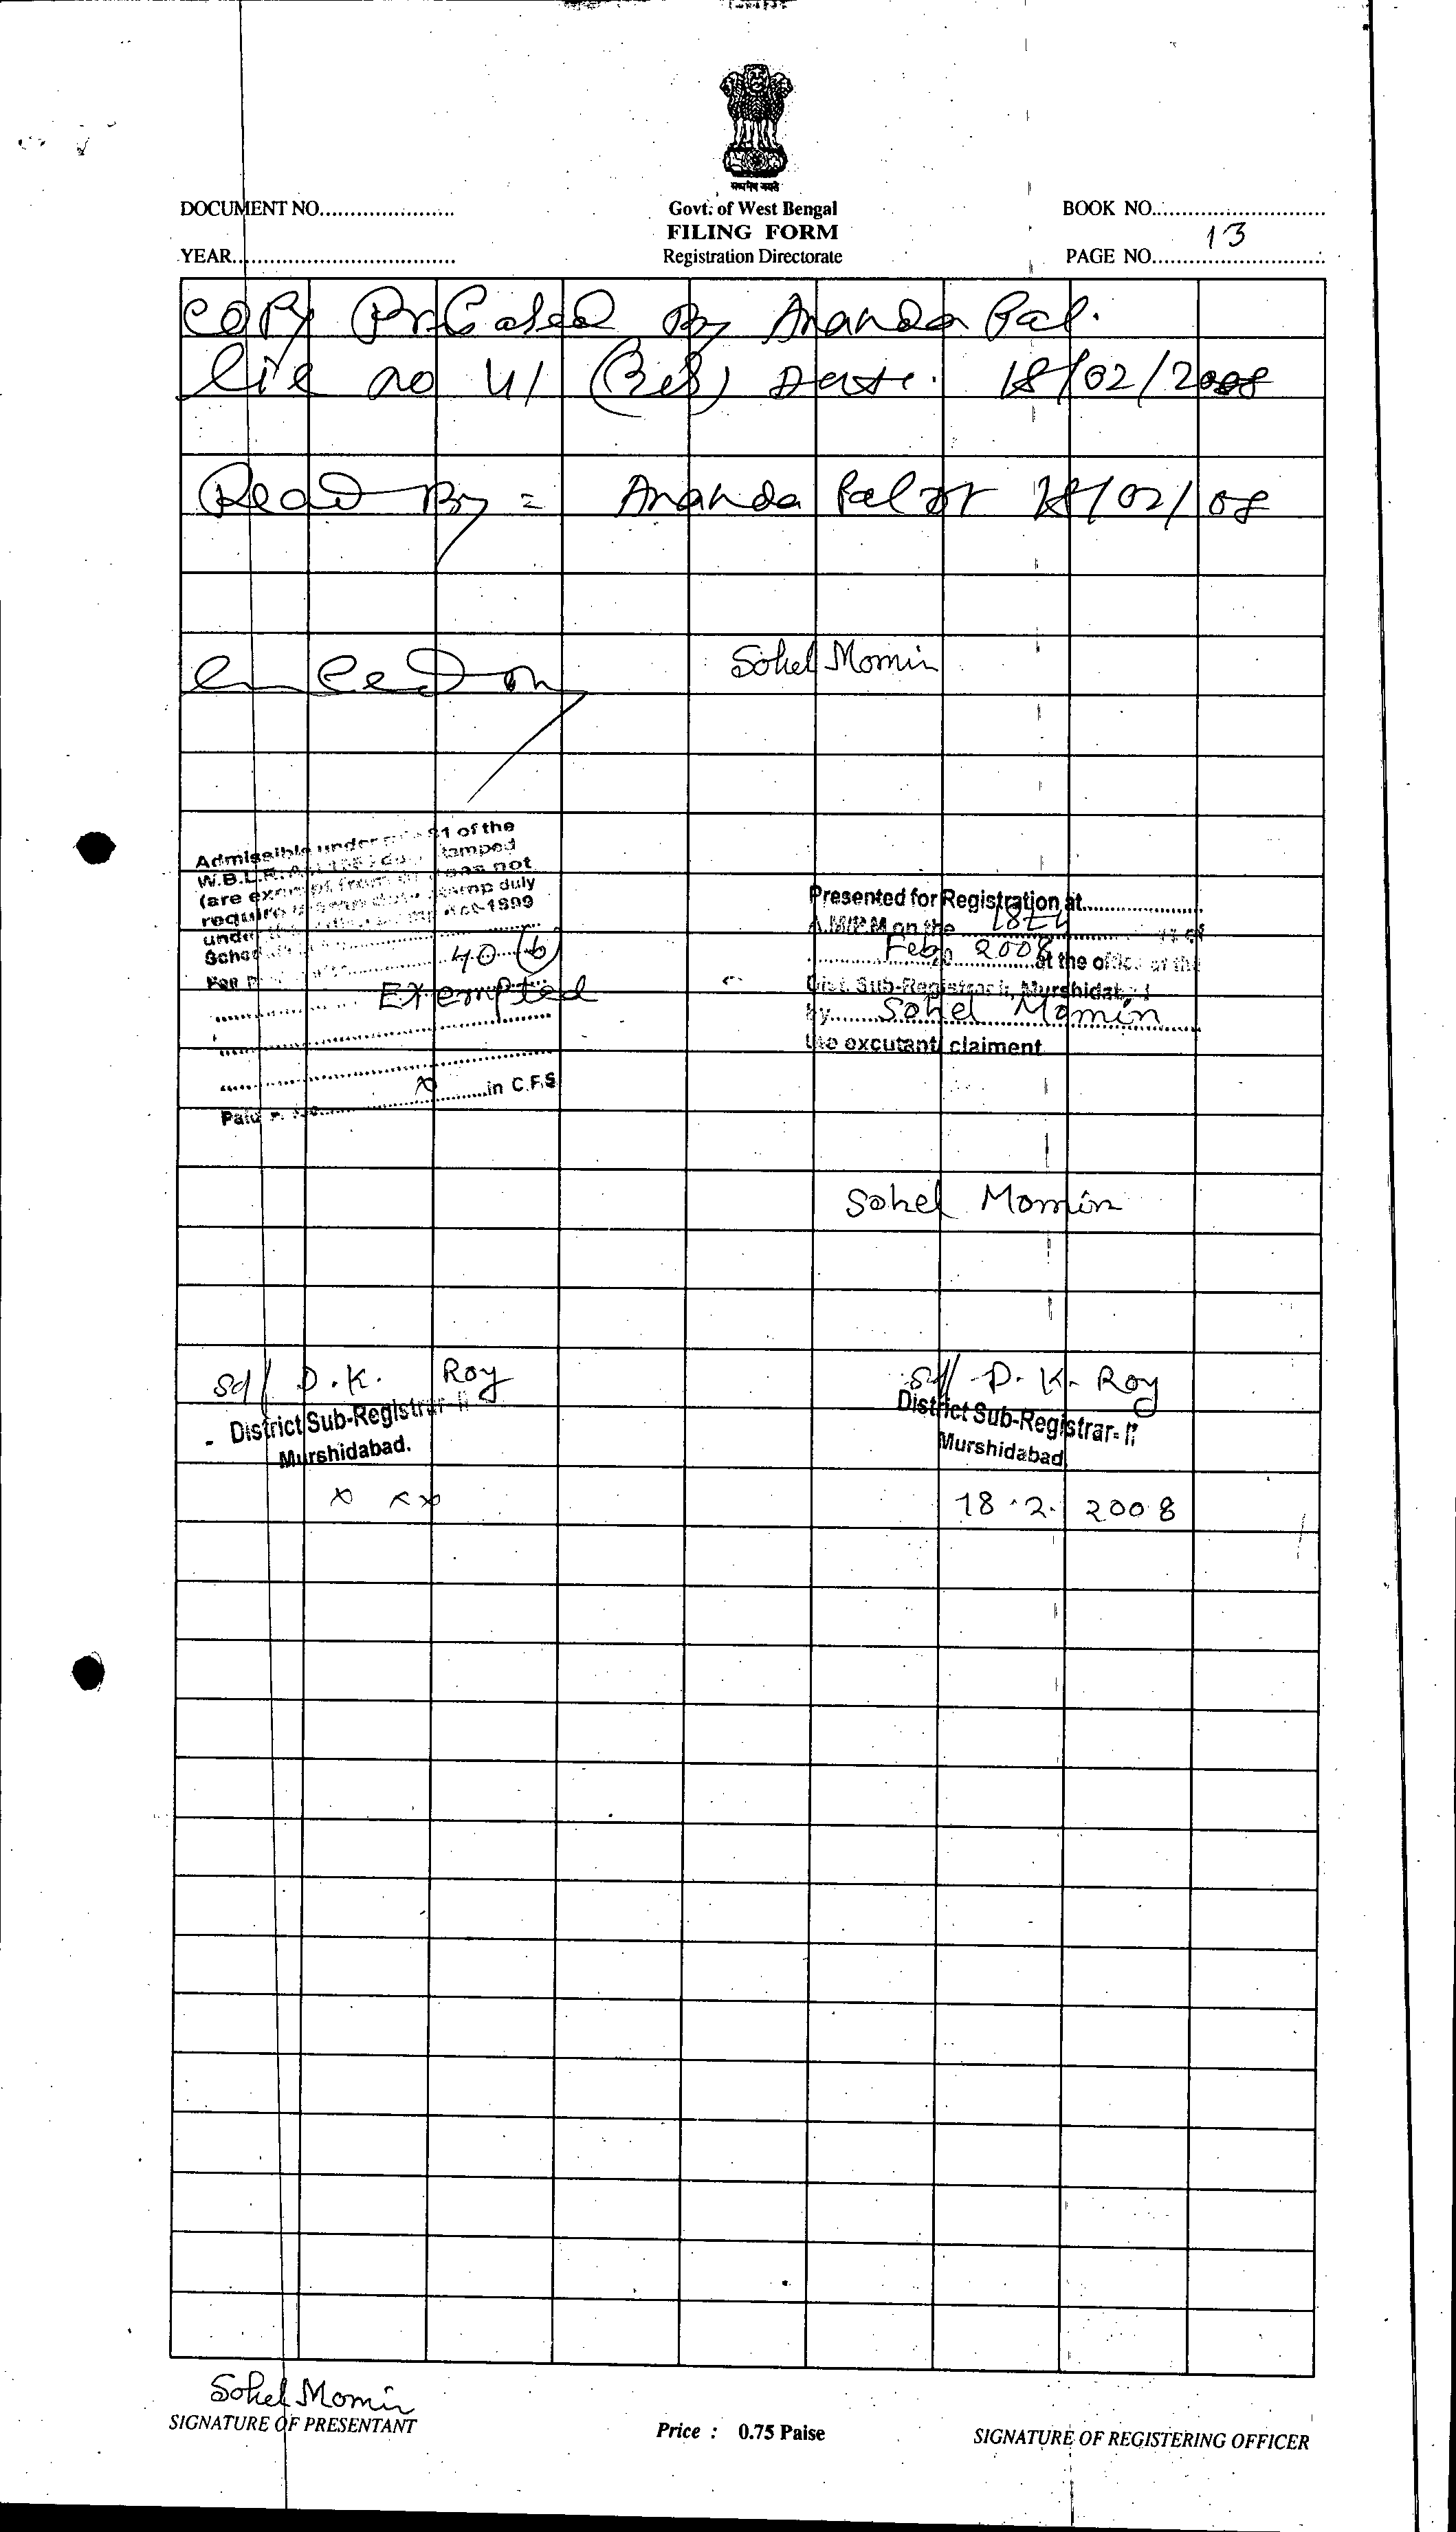 सत्यमेव जयते
DOCUMENT NO......................
Govt. of West Bengal
BOOK NO.............................
FILING FORM
13
YEAR.....................................
Registration Directorate
PAGE NO.............................
Copy By Ananda Pal.
no 41 Date. 18/02/2008
Read By = Ananda Pal 18/02/08
Sohel Momin
Admissible under 21 of the
W.B.L.R. stamped
(are exempt from not
require stamp duty
under Act-1899
40 (b)
Exempted
x in C.F.S
Paid
Presented for Registration at....................
A.M/P.M on the 18th
Feb 2008 at the office of the
Dist. Sub-Registrar-II, Murshidabad
by Sohel Momin
the excutant/ claiment
Sohel Momin
Sd/ D.K. Roy
District Sub-Registrar-II
Murshidabad.
x x x
Sd/ D.K. Roy
District Sub-Registrar-II
Murshidabad
18.2.2008
Sohel Momin
SIGNATURE OF PRESENTANT
Price : 0.75 Paise
SIGNATURE OF REGISTERING OFFICER